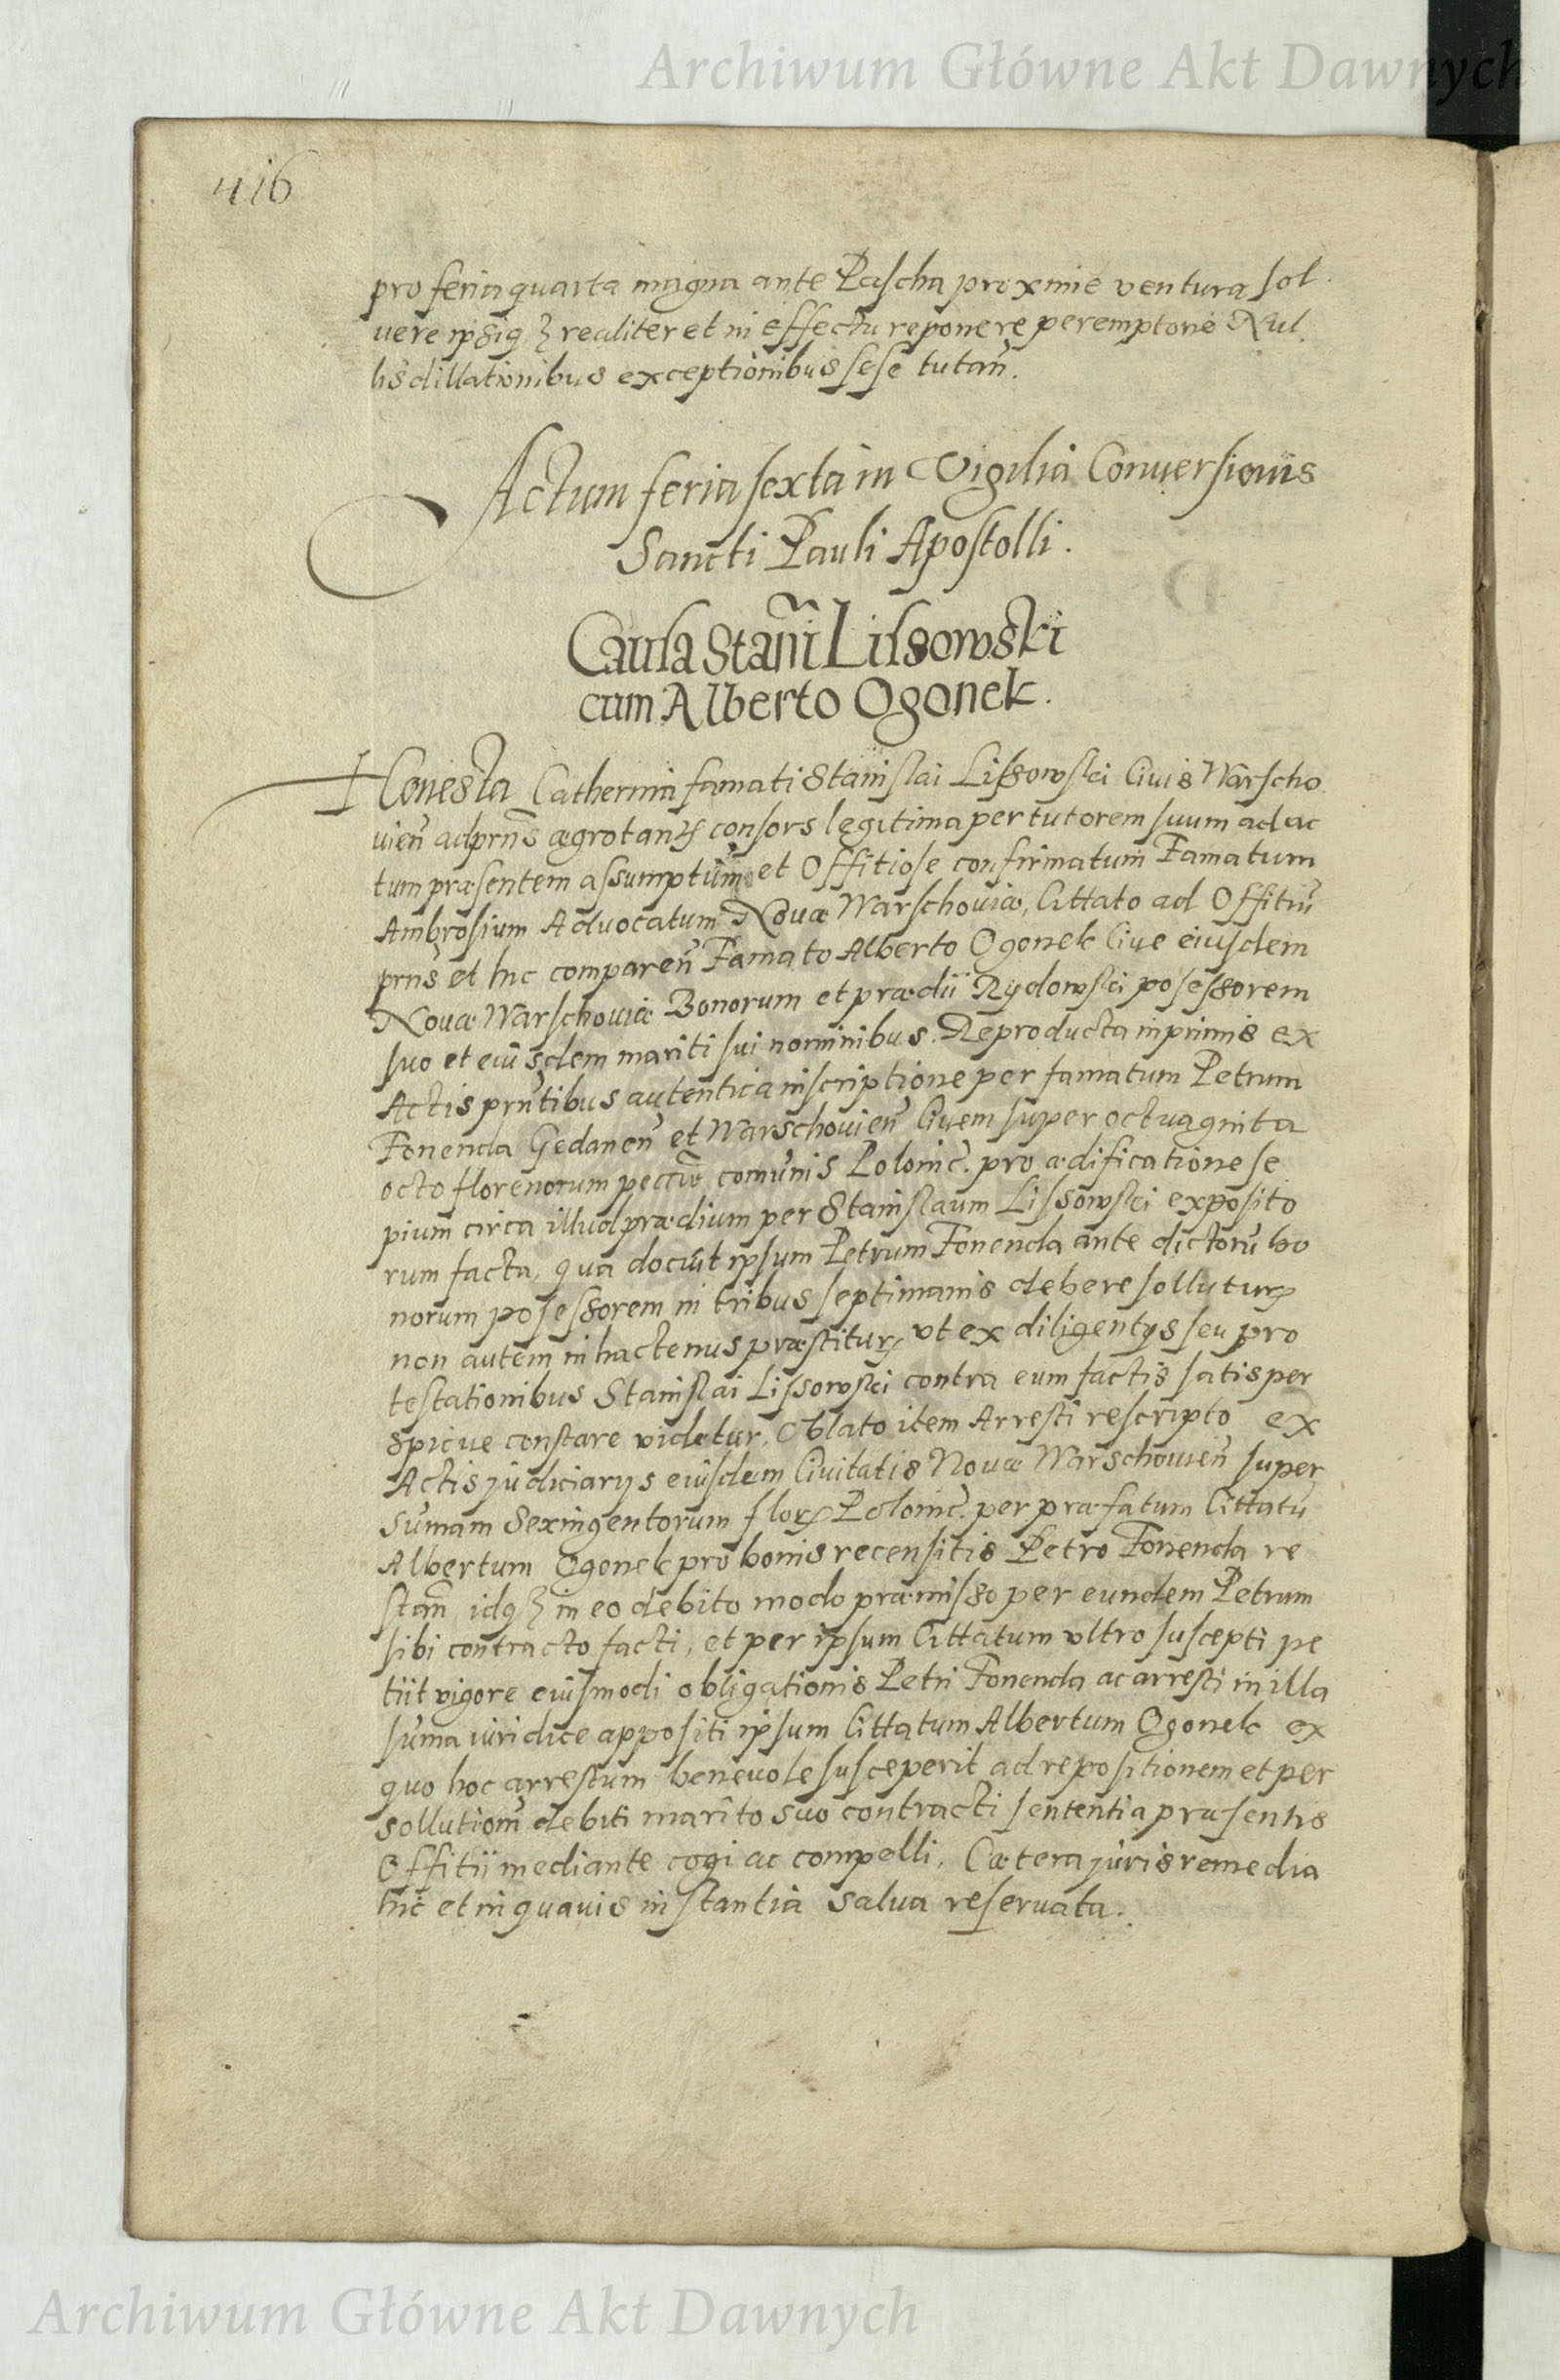 Archiwum Główne Akt Dawnych
416
pro feria quarta magna ante Pascha proxime ventura sol
vere ipsiqꝫ realiter et in effectu reponere peremptorie Nul
lis dillationibus exceptionibus sese tutan̄.
Actum feria sexta in Vigilia Conversionis
Sancti Pauli Apostolli.
Causa Stan̄i Lissowski
cum Alberto Ogonek.
Honesta Catherina famati Stanislai Lissowski Civis Warscho
vien̄ ad prn̄s ægrotanꝭ consors legitima per tutorem suum ad ac
tum præsentem assumptum et Offitiose confirmatum Famatum
Ambrosium Advocatum Novæ Warschoviæ, Cittato ad Offitiū
prn̄s et hic comparen̄ Famato Alberto Ogonek Cive eiusdem
Novæ Warschoviæ Bonorum et prædii Rydowski posessorem
suo et eiusdem mariti sui nominibus. Reproducta inprimis ex
Actis prn̄tibus autentica inscriptione per famatum Petrum
Fonenda Gedanen̄ et Warschovien̄ Civem super octuaginta
octo florenorum pecūiæ comunis Polonic̄. pro ædificatione se
pium circa illud prædium per Stanislaum Lissowski exposito
rum facta, qua docuit ipsum Petrum Fonenda ante dictorū bo
norum posessorem in tribus septimanis debere sollutuꝝ
non autem in hactenus præstituꝝ ut ex diligentys seu pro
testationibus Stanislai Lissowski contra eum factis satis per
spicue constare videtur, Oblato item Arresti rescripto ex
Actis judiciarys eiusdem Civitatis Novæ Warschovien̄ super
sumam Sexingentorum floꝝ Polonic̄. per præfatum Cittatū
Albertum Ogonek pro bonis recensitis Petro Fonenda re
stan̄, idqꝫ in eo debito modo præmisso per eundem Petrum
sibi contracto facti, et per ipsum Cittatum ultro suscepti pe
tiit vigore eiusmodi obligationis Petri Fonenda ac arresti in illa
suma iuridice appositi ipsum Cittatum Albertum Ogonek ex
quo hoc arrestum benevole susceperit ad repositionem et per
sollution̄ debiti marito suo contracti sententia præsentis
Offitii mediante cogi ac compelli. Cætera juris remedia
hic et in quavis instantia salva reservata.
Archiwum Główne Akt Dawnych